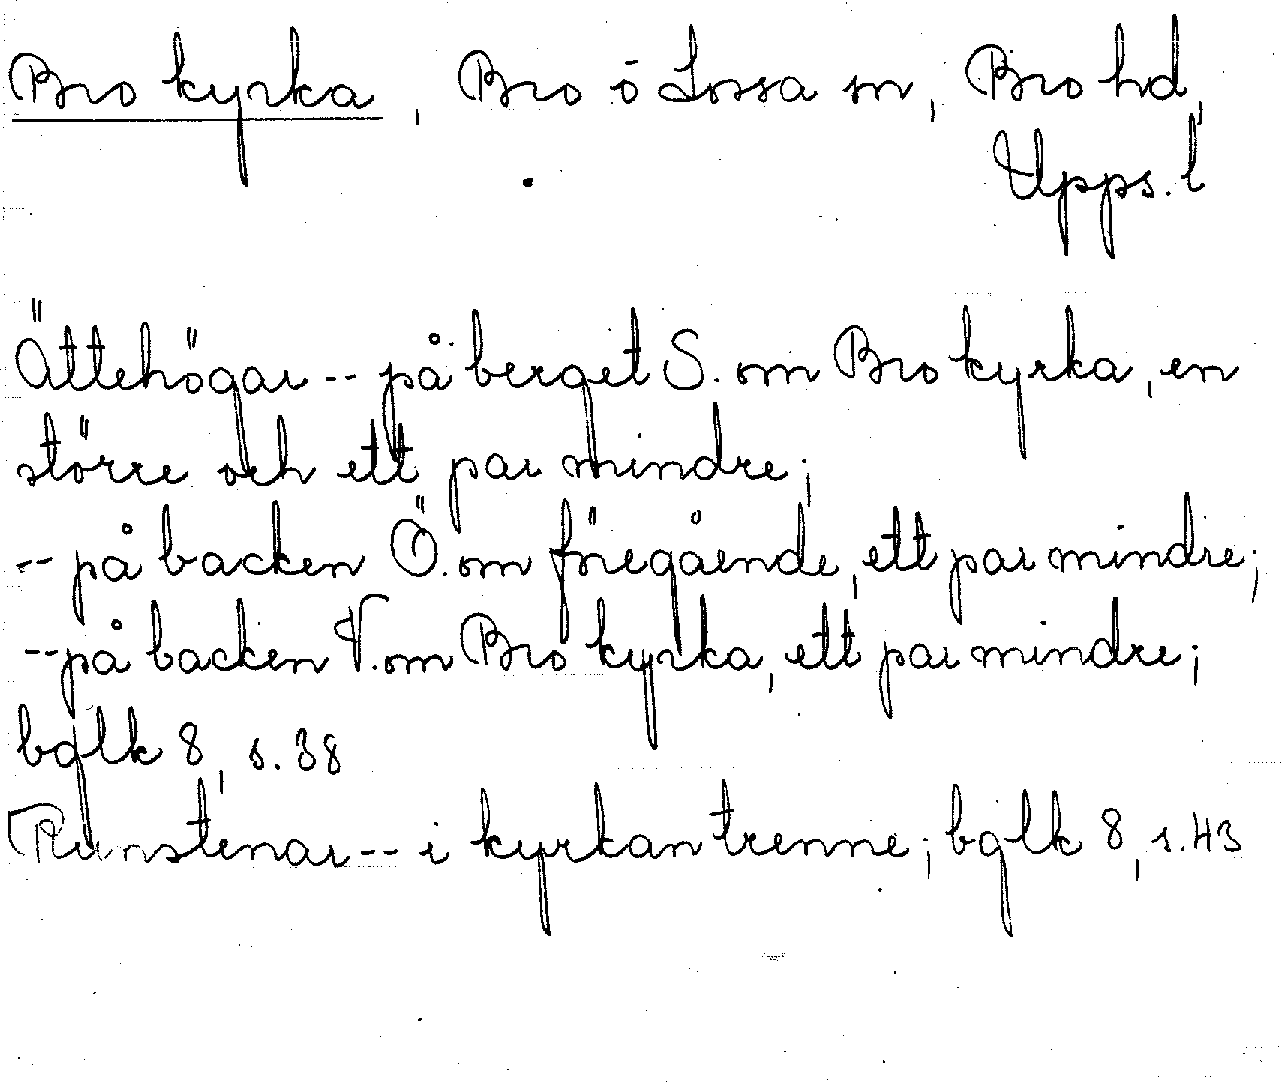 Bro kyrka, Bro ō Lossa sn, Bro hd,
Upps. l
Ättehögar -- på berget S. om Bro kyrka, en
större och ett par mindre;
-- på backen Ö. om föregående, ett par mindre;
-- på backen V. om Bro kyrka, ett par mindre;
bglk 8, s. 38
Runstenar -- i kyrkan trenne; bglk 8, s. 43